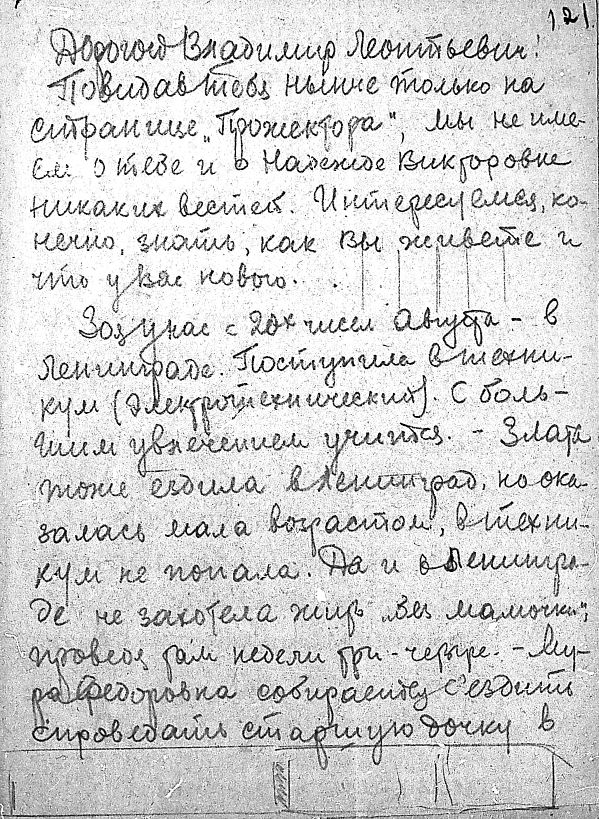 121.
Дорогой Владимир Леонтьевич!
Повидав тебя нынче только на
странице "Прожектора", мы не име-
ем о тебе и о Надежде Викторовне
никаких вестей. Интересуемся, ко-
нечно, знать, как вы живете и
что у вас нового.
Зоя у нас с 20х чисел Августа - в
Ленинграде. Поступила в техни-
кум (Электротехнический). С боль-
шим увлечением учится. - Злата
тоже ездила в Ленинград, но ока-
залась мала возрастом, в техни-
кум не попала. Да и в Ленингра-
де не захотела жить "без мамочки",
проведя там недели три-четыре. - Му-
ра Федоровна собирается съездить
проведать старшую дочку в